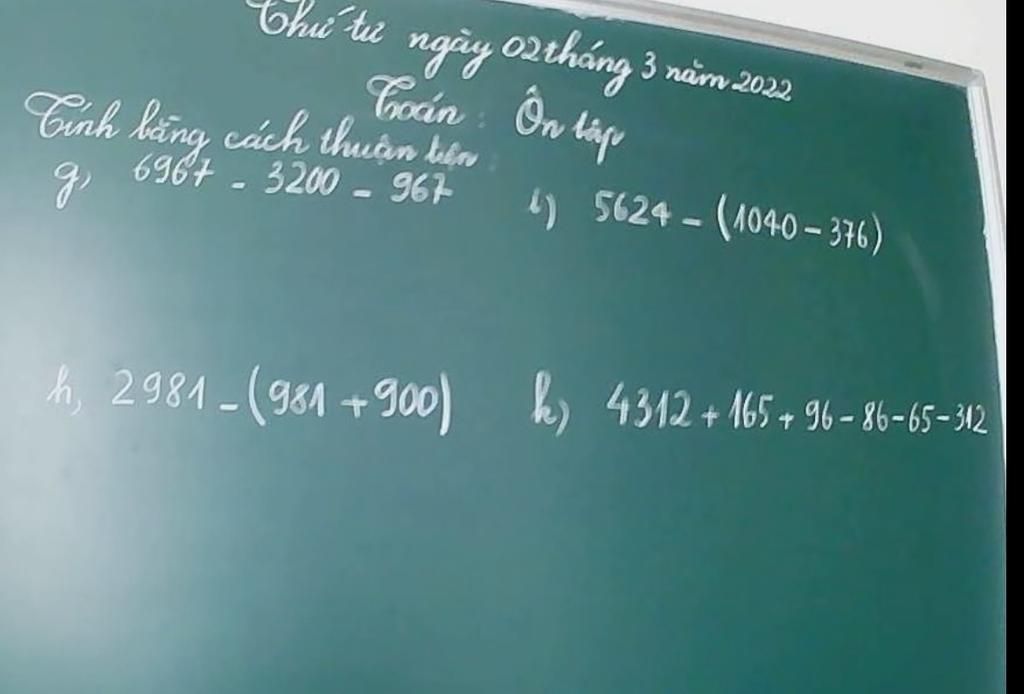 Thứ tư ngày 02 tháng 3 năm 2022
Toán: Ôn tập
Tính bằng cách thuận tiện:
g, 6967 - 3200 - 967
i) 5624 - (1040 - 376)
h, 2981 - (981 + 900)
k) 4312 + 165 + 96 - 86 - 65 - 312